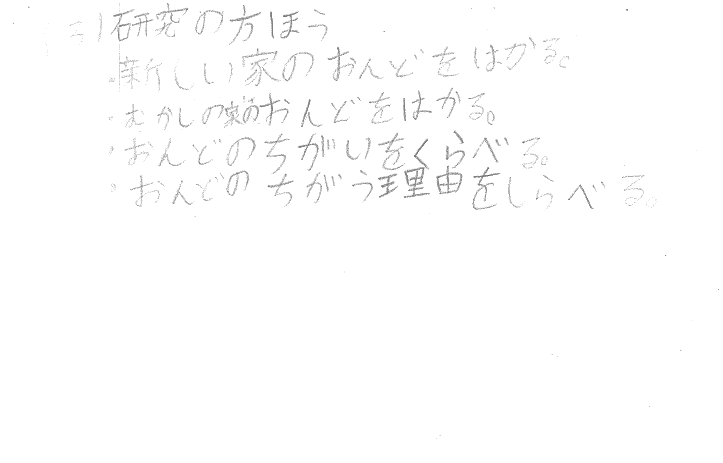 研究の方ほう
・新しい家のおんどをはかる。
・むかしの家のおんどをはかる。
・おんどのちがいをくらべる。
・おんどのちがう理由をしらべる。